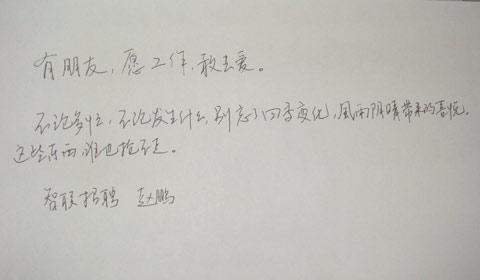 有朋友，愿工作，敢去爱。
不论多忙，不论发生什么，别忘了四季变化，風雨阴晴带来的喜悦。
这些东西，谁也抢不走。
智联招聘 赵鹏